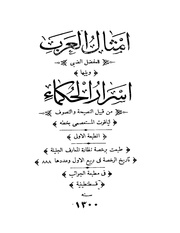 امثال العرب
للمفضل الضبي
ويليها
اسرار الحكماء
من قبيل النصيحة والتصوف
لياقوت المستعصمي بخطه
الطبعة الاولى
طبعت برخصة نظارة المعارف الجليلة
تاريخ الرخصة في ربيع الاول وعددها ٨٨٨
في مطبعة الجوائب
قسطنطينية
سنة
١٣٠٠